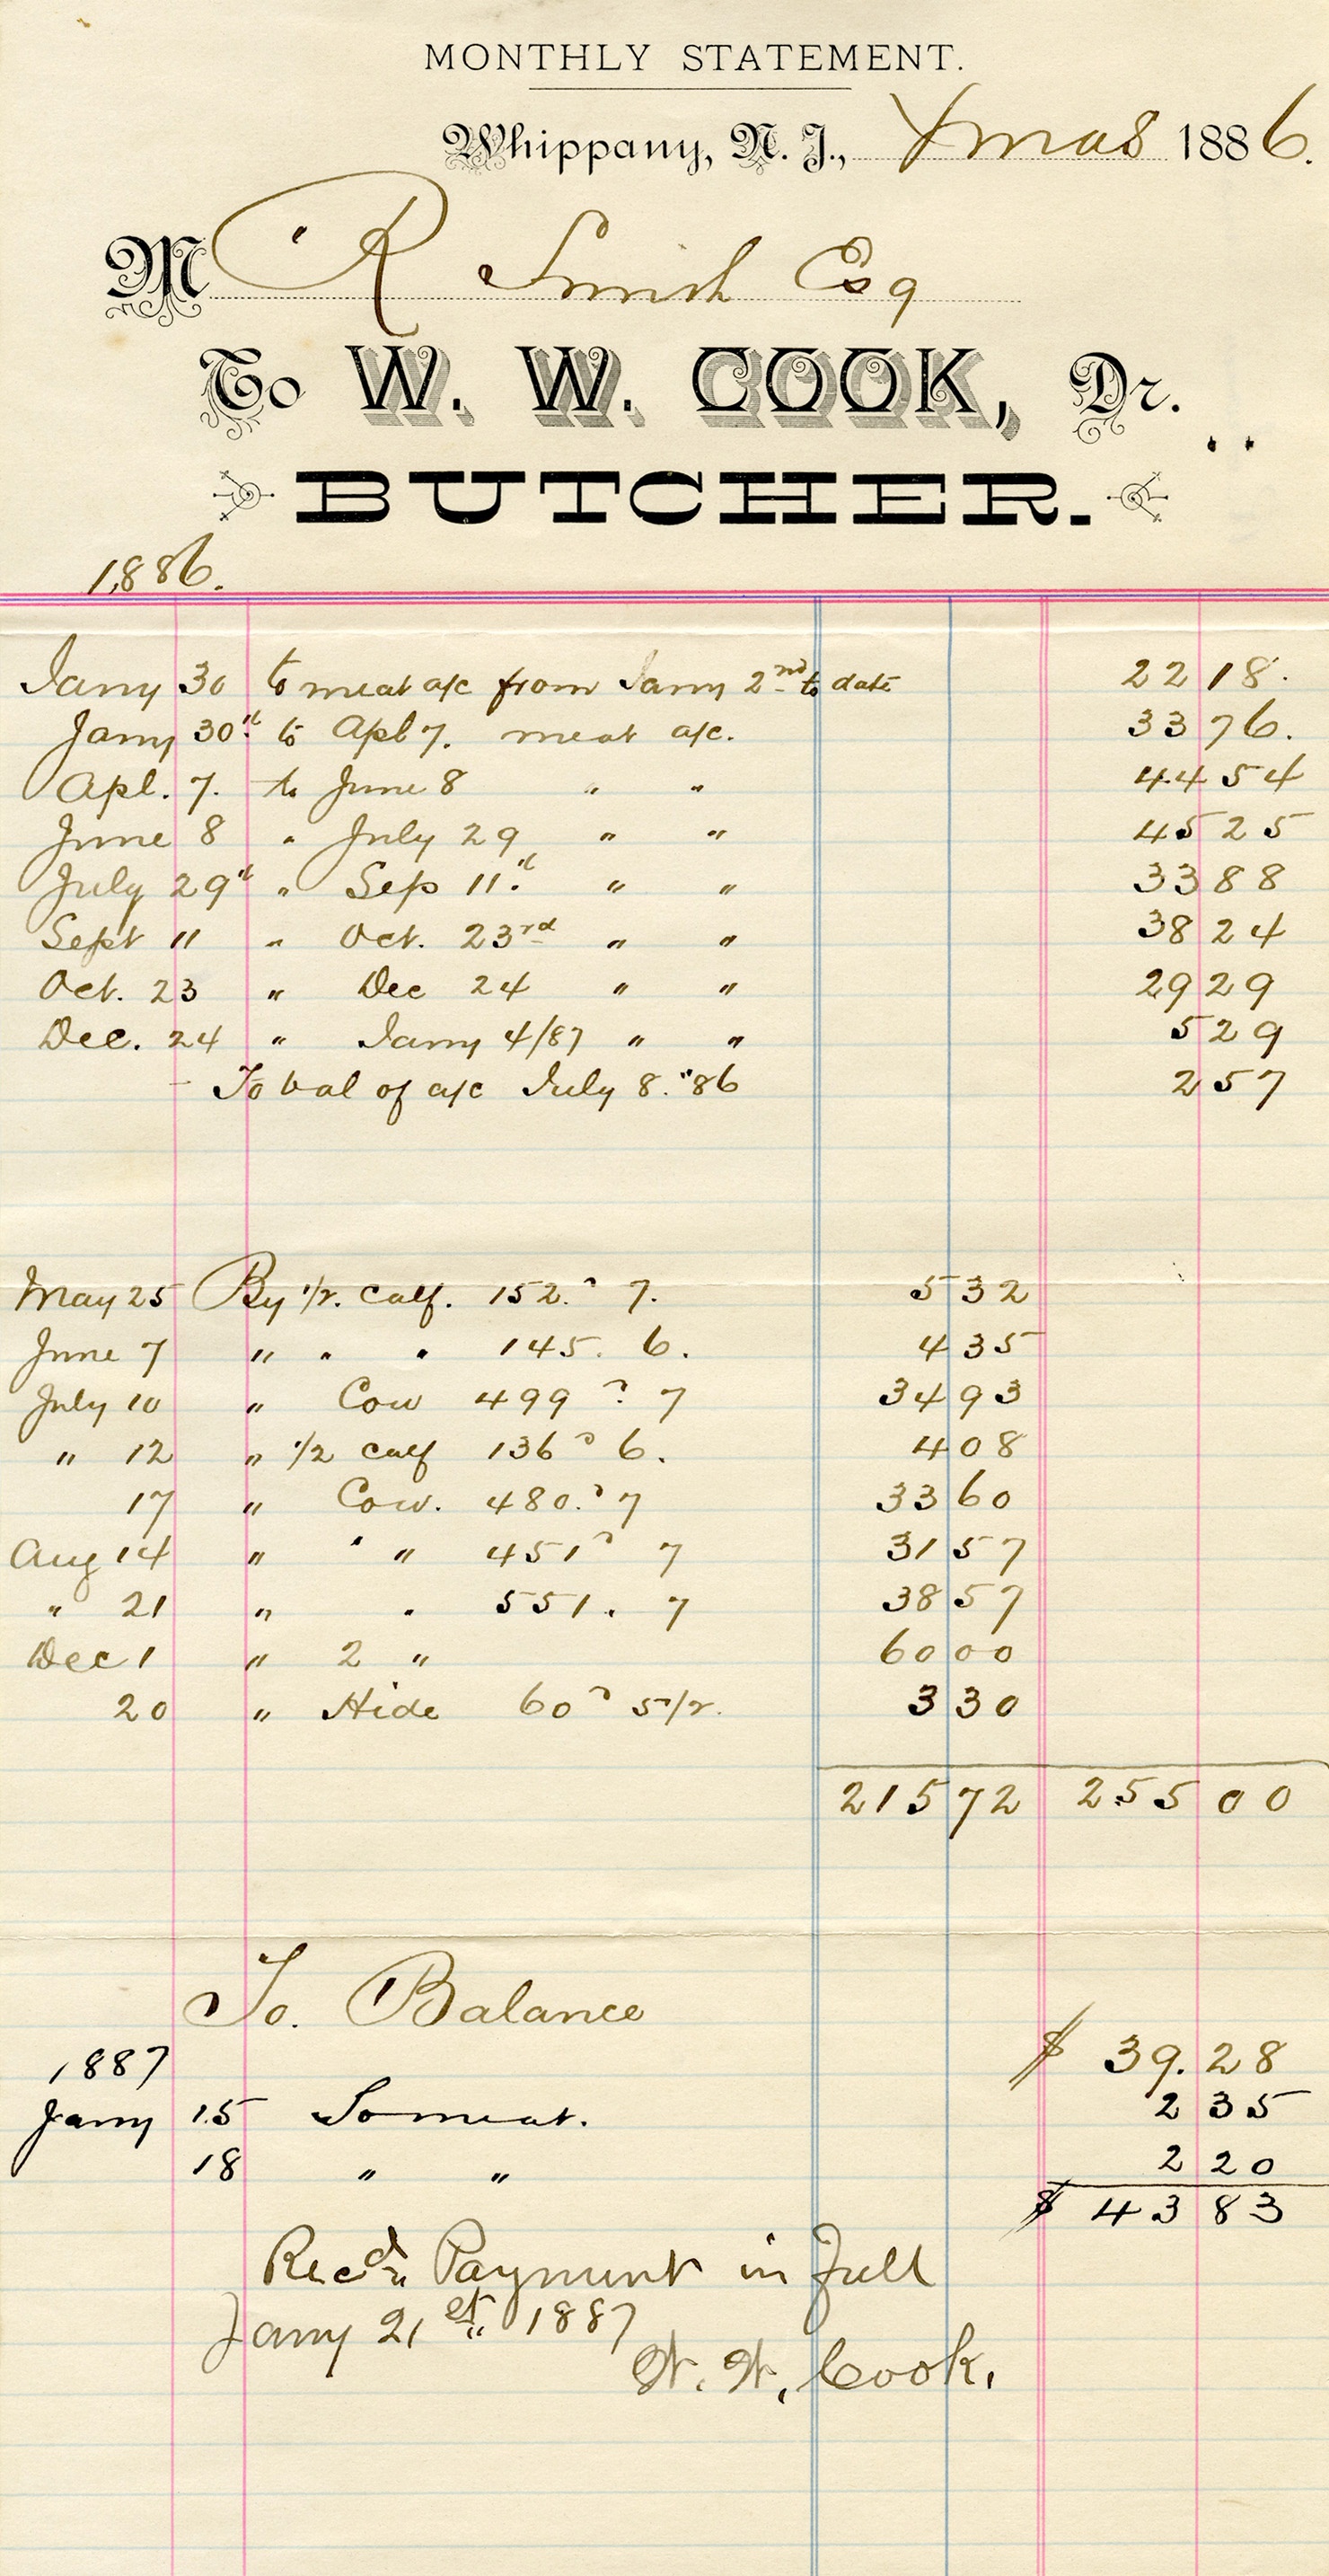 MONTHLY STATEMENT.
Whippany, N. J., Xmas 1886.
M R Smith Esq
To W. W. COOK, Dr.
BUTCHER.
1886.
Jany 30 to meat a/c from Jany 2nd to date 22 18.
Jany 30th to Apl 7. meat a/c. 33 76.
Apl. 7. to June 8 " " 44 54
June 8 " July 29 " " 45 25
July 29th " Sep 11th " " 33 88
Sept 11 " Oct. 23rd " " 38 24
Oct. 23 " Dec 24 " " 29 29
Dec. 24 " Jany 4/87 " " 5 29
To bal of a/c July 8. "86 2 57
May 25 By 1/2. Calf. 152. 7. 5 32
June 7 " " " 145. 6. 4 35
July 10 " Cow 499 7 34 93
" 12 " 1/2 Calf 136 6. 4 08
17 " Cow. 480. 7 33 60
Aug 14 " " " 451 7 31 57
" 21 " " 551. 7 38 57
Dec 1 " 2 " 60 00
20 " Hide 60 5 1/2. 3 30
215 72 255 00
To. Balance
$ 39.28
1887
Jany 15 To meat. 2 35
18 " " 2 20
$ 43 83
Recd. Payment in Full
Jany 21st 1887
W. W. Cook.